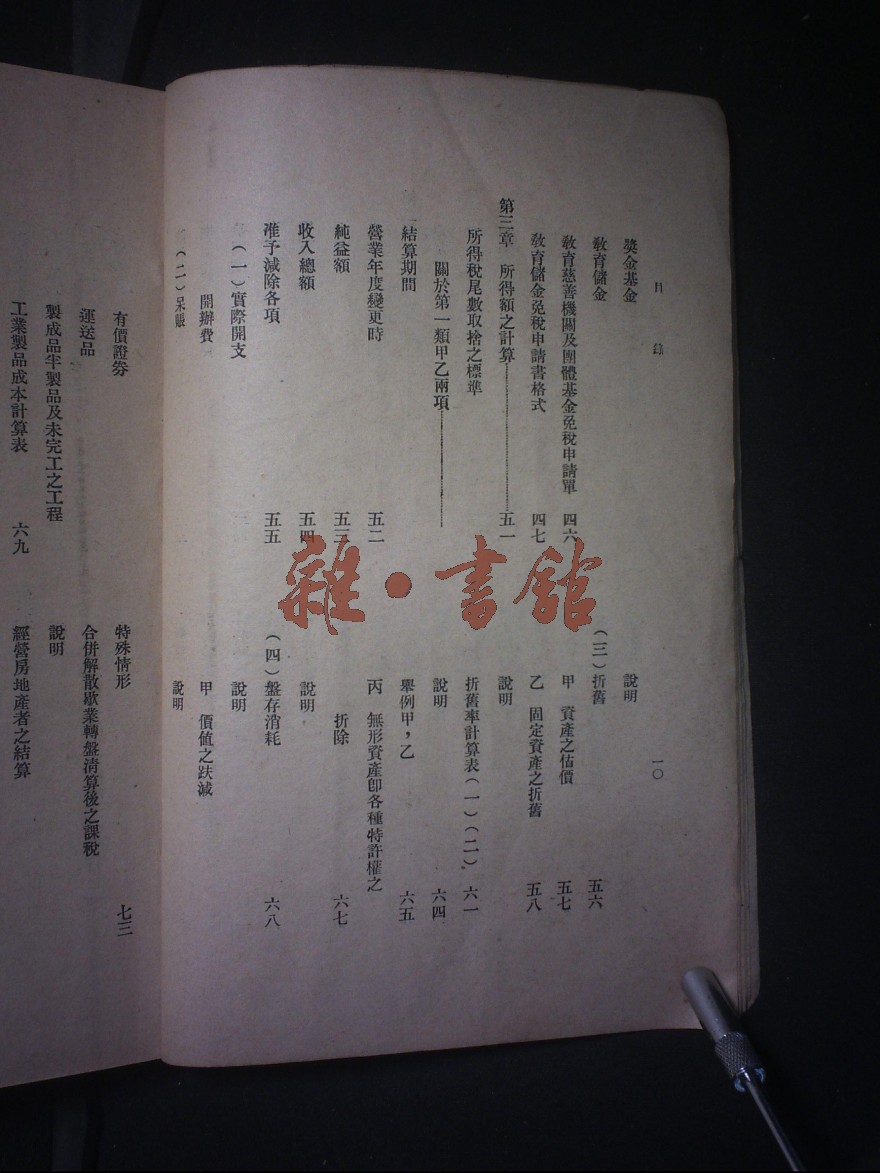 目錄
一〇
獎金基金
教育儲金
教育慈善機關及團體基金免稅申請單 四六
教育儲金免稅申請書格式 四七
第三章 所得額之計算 五一
所得稅尾數取捨之標準
關於第一類甲乙兩項
結算期間
營業年度變更時 五二
純益額 五三
收入總額 五四
准予減除各項 五五
(一)實際開支
開辦費
(二)呆賬
說明
(三)折舊 五六
甲 資產之估價 五七
乙 固定資產之折舊 五八
說明
折舊率計算表(一)(二) 六一
說明 六四
舉例甲,乙 六五
丙 無形資產卽各種特許權之
折除 六七
說明
(四)盤存消耗 六八
說明
甲 價值之跌減
說明
有價證劵
運送品
製成品半製品及未完工之工程
工業製品成本計算表 六九
特殊情形 七三
合併解散歇業轉盤淸算後之課稅
說明
經營房地產者之結算
雜·書館